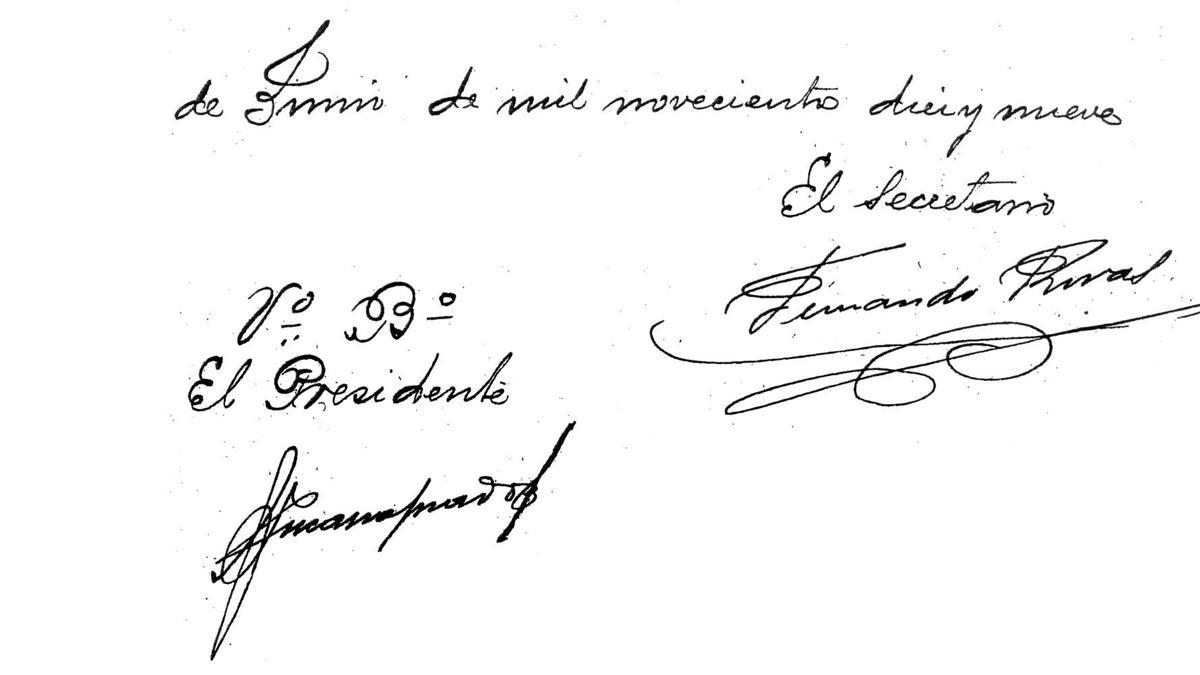 de Junio de mil novecientos diez y nueve
El Secretario
Fernando Rivas
Vº Bº
El Presidente